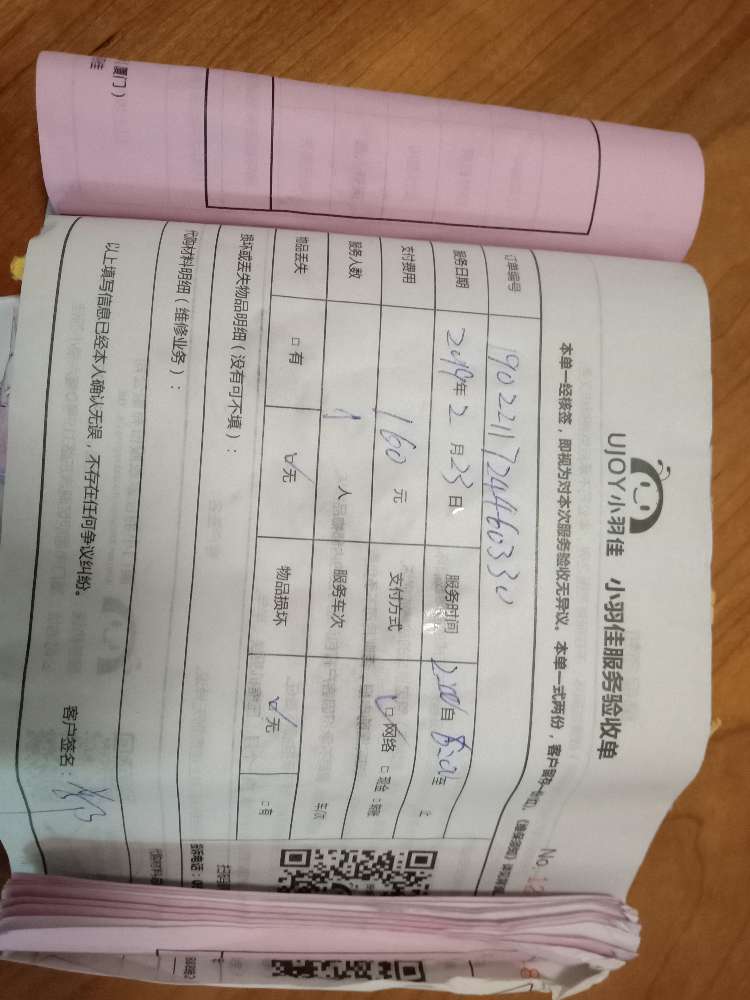 UJOY小羽佳 小羽佳服务验收单
No
本单一经核签，即视为对本次服务验收无异议。本单一式两份，客户留存一份
订单编号 19022117244460330
服务日期 2019年2月23日 服务时间 自 至 止
支付费用 160元 支付方式 ☑网络 □现金
服务人数 1人 服务车次 车/次
物品丢失 □有 ☑无 物品损坏 ☑无 □有
损坏或丢失物品明细（没有可不填）：
代购材料明细（维修业务）：
以上填写信息已经本人确认无误，不存在任何争议纠纷。
客户签名：
厦门）